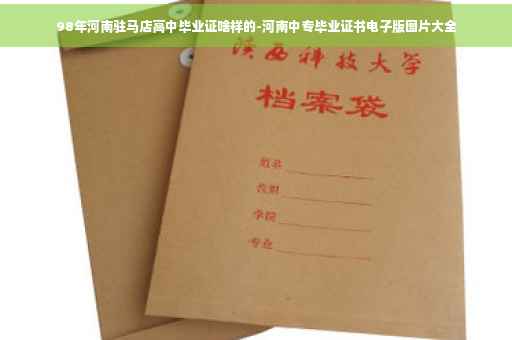 98年河南驻马店高中毕业证啥样的-河南中专毕业证书电子版图片大全
陕西科技大学
档案袋
姓名
性别
学院
专业